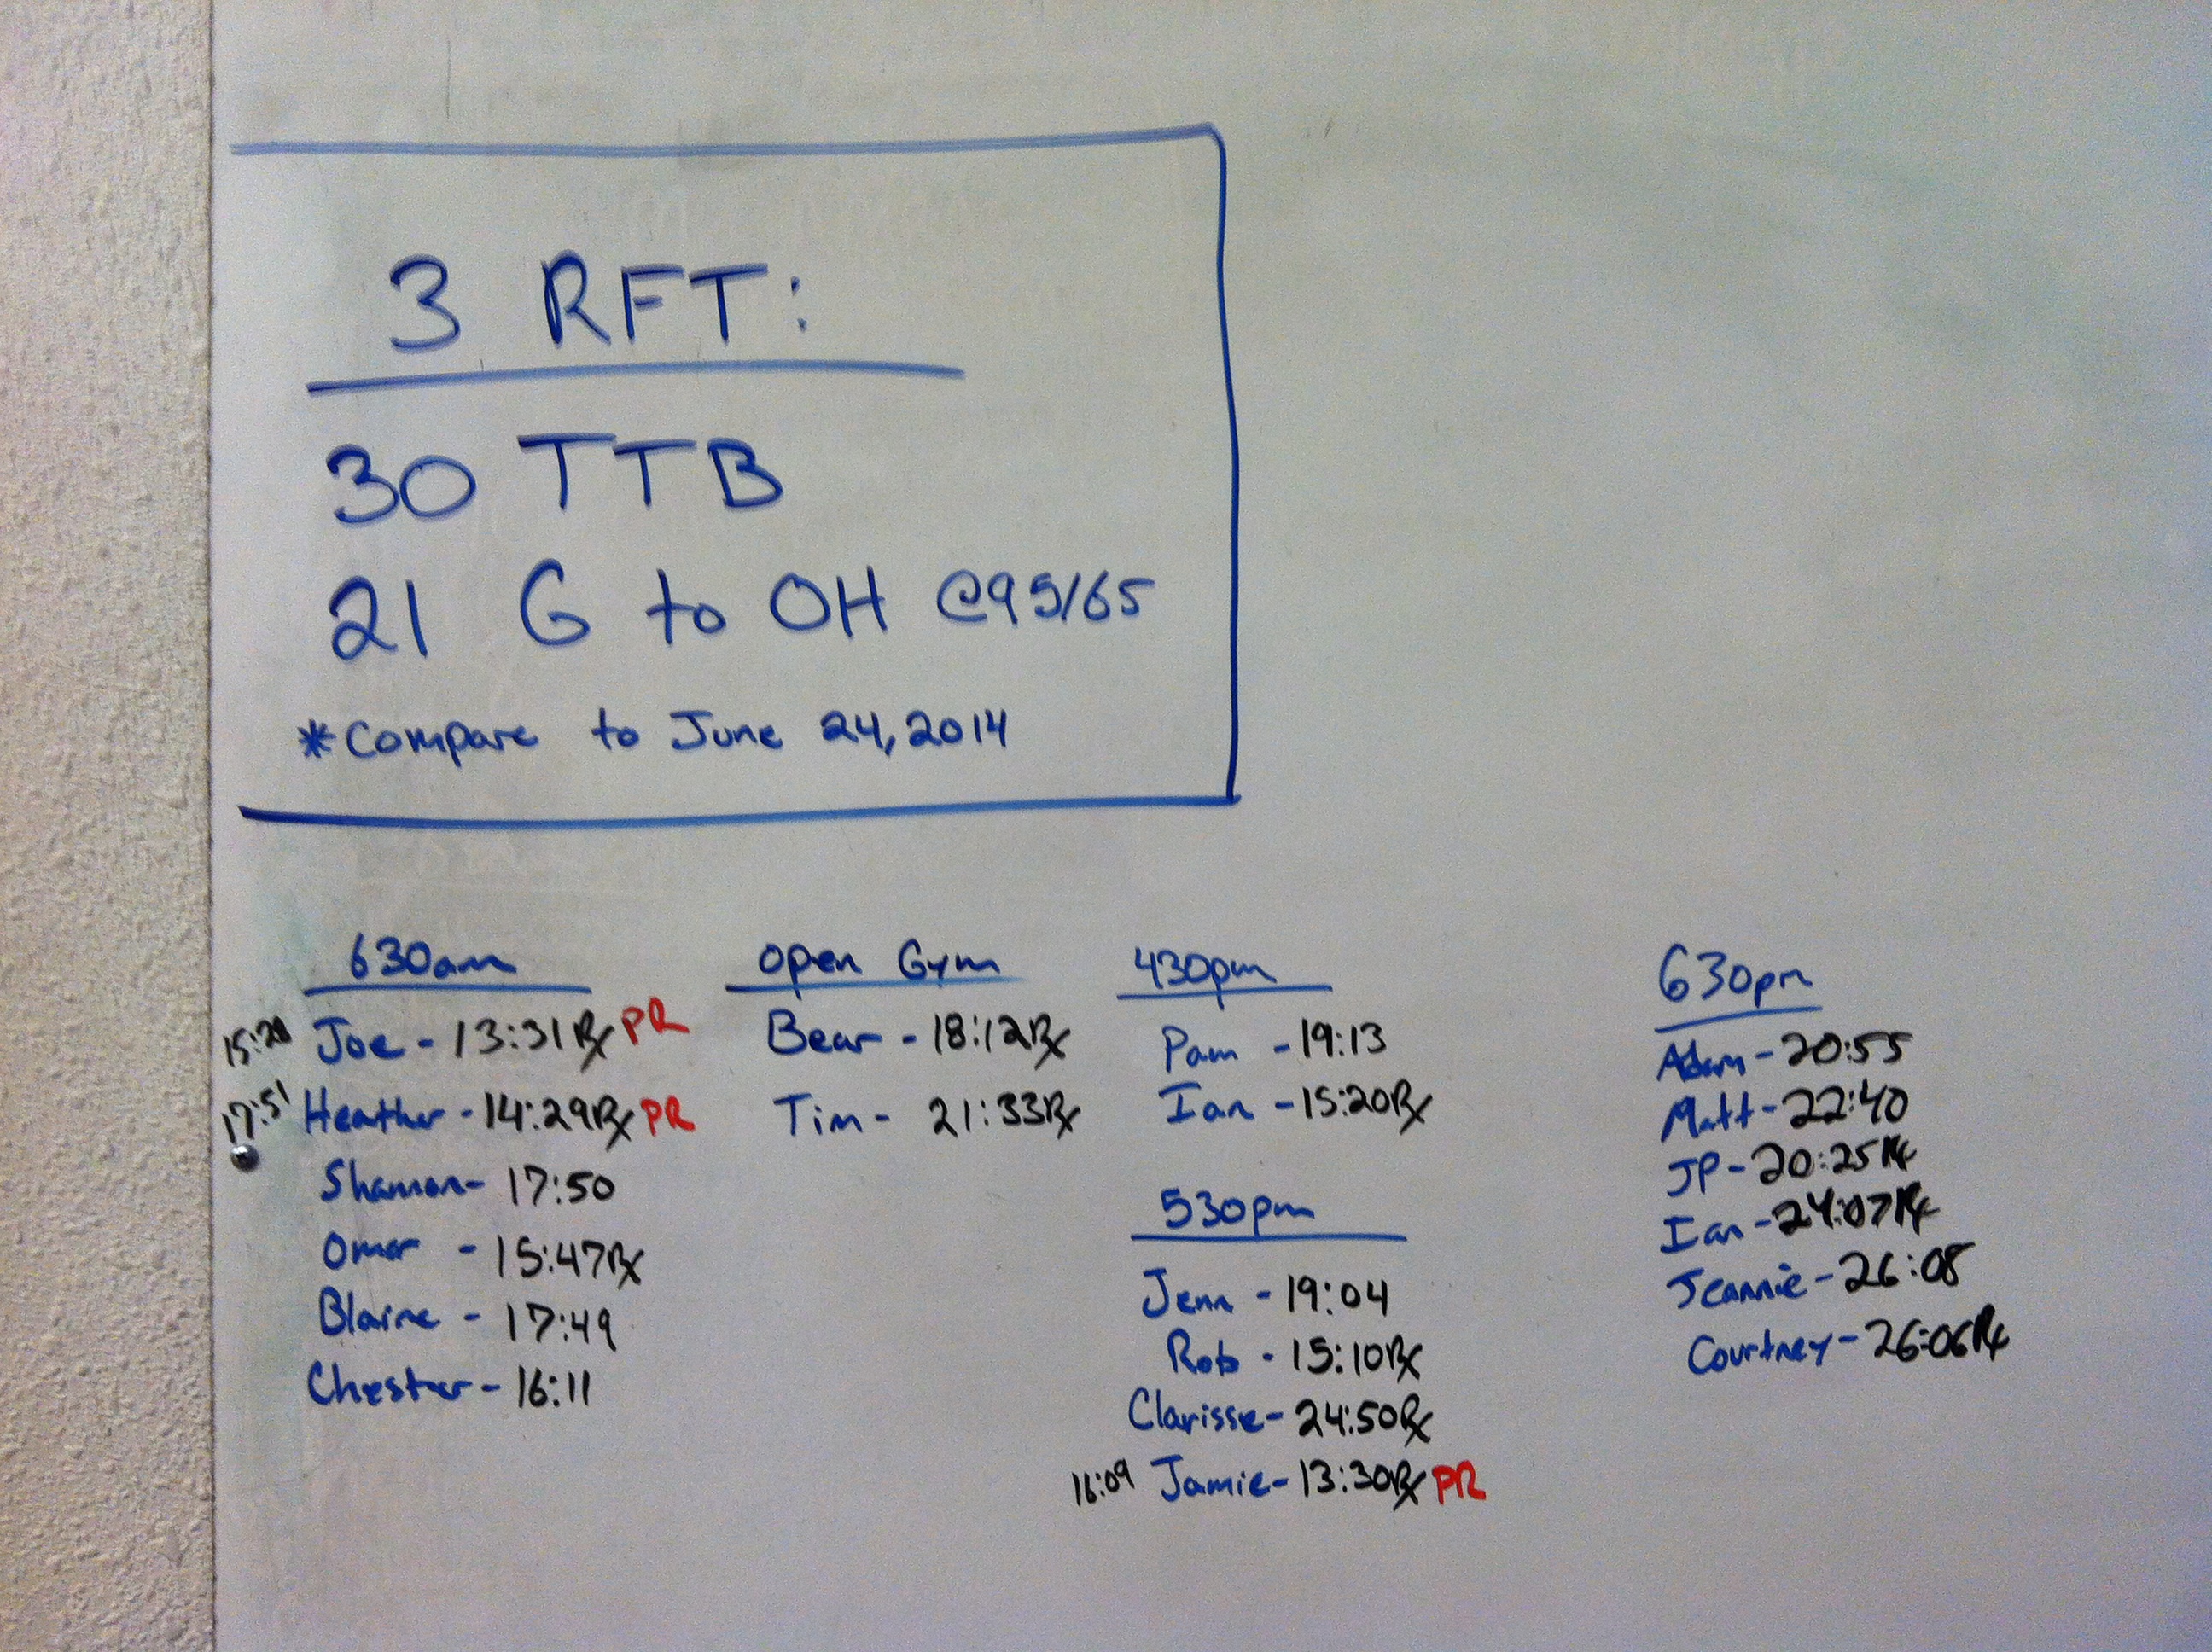 3 RFT:
30 TTB
21 G to OH @95/65
*Compare to June 24, 2014
630am
15:28 Joe - 13:31 Rx PR
17:51 Heather - 14:29 Rx PR
Shannon - 17:50
Omar - 15:47 Rx
Blaine - 17:49
Chester - 16:11
Open Gym
Bear - 18:12 Rx
Tim - 21:33 Rx
430pm
Pam - 19:13
Ian - 15:20 Rx
530pm
Jenn - 19:04
Rob - 15:10 Rx
Clarisse - 24:50 Rx
16:09 Jamie - 13:30 Rx PR
630pm
Adam - 20:55
Matt - 22:40
JP - 20:25 Rx
Ian - 24:07 Rx
Jeannie - 26:08
Courtney - 26:06 Rx